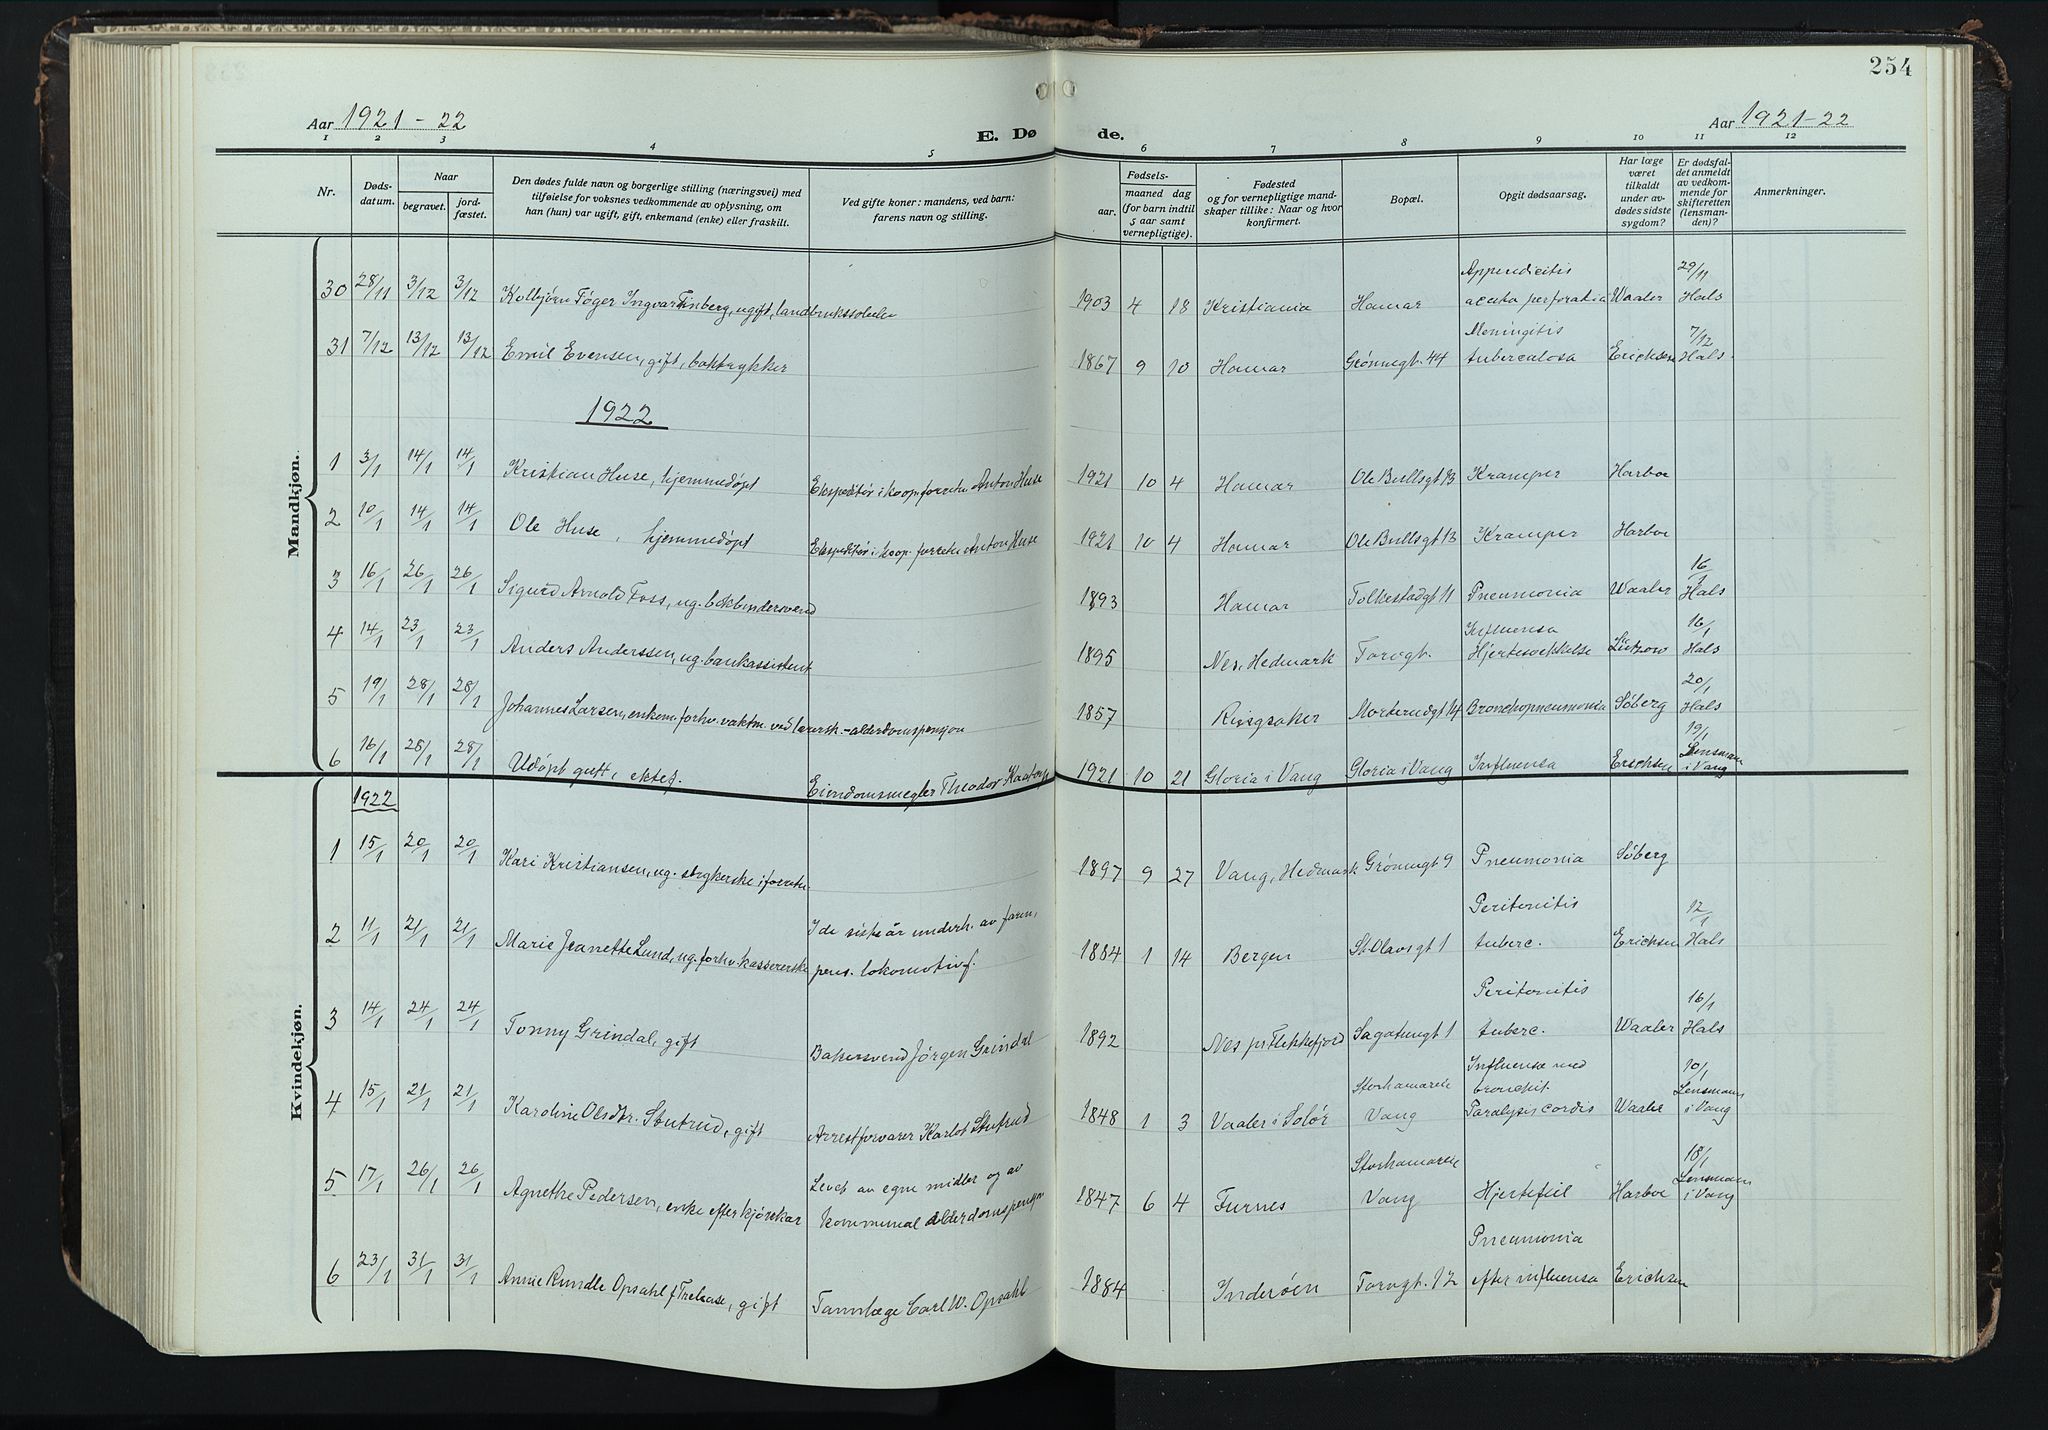 254
Aar 1921-22
E. Dø
de.
Aar 1921-22
1 2 3 4 5 6 7 8 9 10 11 12
Nr.
Døds-
datum.
Naar
begravet.
jord-
fæstet.
Den dødes fulde navn og borgerlige stilling (næringsvei) med
tilføielse for voksnes vedkommende av oplysning, om
han (hun) var ugift, gift, enkemand (enke) eller fraskilt.
Ved gifte koner: mandens, ved barn:
farens navn og stilling.
Fødsels-
aar.
maaned dag
(for barn indtil
5 aar samt
vernepligtige).
Fødested
og for vernepligtige mand-
skaper tillike: Naar og hvor
konfirmert.
Bopæl.
Opgit dødsaarsag.
Har læge
været
tilkaldt
under av-
dødes sidste
sygdom?
Er dødsfal-
det anmeldt
av vedkom-
mende for
skifteretten
(lensman-
den)?
Anmerkninger.
Mandkjøn.
30 28/11 3/12 3/12 Kolbjørn Føger Ingvar Finberg, ugift, landbrukss 1903 4 18 Kristiania Hamar Appendicitis acuta perforatia Waaler 29/11 Hals
31 7/12 13/12 13/12 Emil Evensen, gift, boktrykker 1867 9 10 Hamar Grønnegt. 44 Meningitis tuberculosa Ericksen 7/12 Hals
1922
1 3/1 14/1 14/1 Kristian Huse, hjemmedøpt Ekspeditør i koop. forretn. Anton Huse 1921 10 4 Hamar Ole Bullsgt 13 Kramper Harboe
2 10/1 14/1 14/1 Ole Huse, hjemmedøpt Ekspeditør i koop. forretn. Anton Huse 1921 10 4 Hamar Ole Bullsgt 13 Kramper Harboe
3 16/1 26/1 26/1 Sigurd Arnold Foss, ug. bokbindersvend 1893 Hamar Folkestadgt 11 Pneumonia Waaler 16/1 Hals
4 14/1 23/1 23/1 Anders Anderssen, ug. bankassistent 1895 Nes, Hedmark Torvgt. Influensa Hjertesvekkelse Lützow 16/1 Hals
5 19/1 28/1 28/1 Johannes Larsen, enkem. forhv. vaktm. ved lærersk. - alderdomspensjon 1857 Ringsaker Morterudgt 14 Bronchopneumonia Søberg 20/1 Hals
6 16/1 28/1 28/1 Udøpt gutt, ektef. Eiendomsmegler Theodor 1921 10 21 Gloria i Vang Gloria i Vang Influensa Erichsen 19/1 Lensmann i Vang
Kvindekjøn.
1922
1 15/1 20/1 20/1 Kari Kristiansen, ug. strykerske i forretn. 1897 9 27 Vang, Hedmark Grønnegt 9 Pneumonia Søberg
2 11/1 21/1 21/1 Marie Jeanette Lund, ug. forhv. kassererske I de siste år underh. av faren, pens. lokomotivf. 1884 1 14 Bergen St. Olavsgt 1 Peritonitis tuberc. Erichsen 12/1 Hals
3 14/1 24/1 24/1 Tonny Grindal, gift Bakersvend Jørgen Grindal 1892 Nes pr Flekkefjord Sagatungt 1 Peritonitis tuberc. Waaler 16/1 Hals
4 15/1 21/1 21/1 Karoline Olsdtr. Stutrud, gift Arrestforvarer Karlot Stutrud 1848 1 3 Vaaler i Solør Storhamareie Vang Influensa med bronchit Paralysis cordis Waaler 10/1 Lensmann i Vang
5 17/1 26/1 26/1 Agnethe Pedersen, enke efter kjørekar Levet av egne midler og av kommunal alderdomspensjon 1847 6 4 Furnes Storhamareie Vang Hjertefeil Harboe 18/1 Lensmann i Vang
6 23/1 31/1 31/1 Annie Rundle Opsahl f. Trelease, gift Tannlæge Carl W. Opsahl 1884 Inderøen Torvgt. 12 Pneumonia efter influensa Erichsen